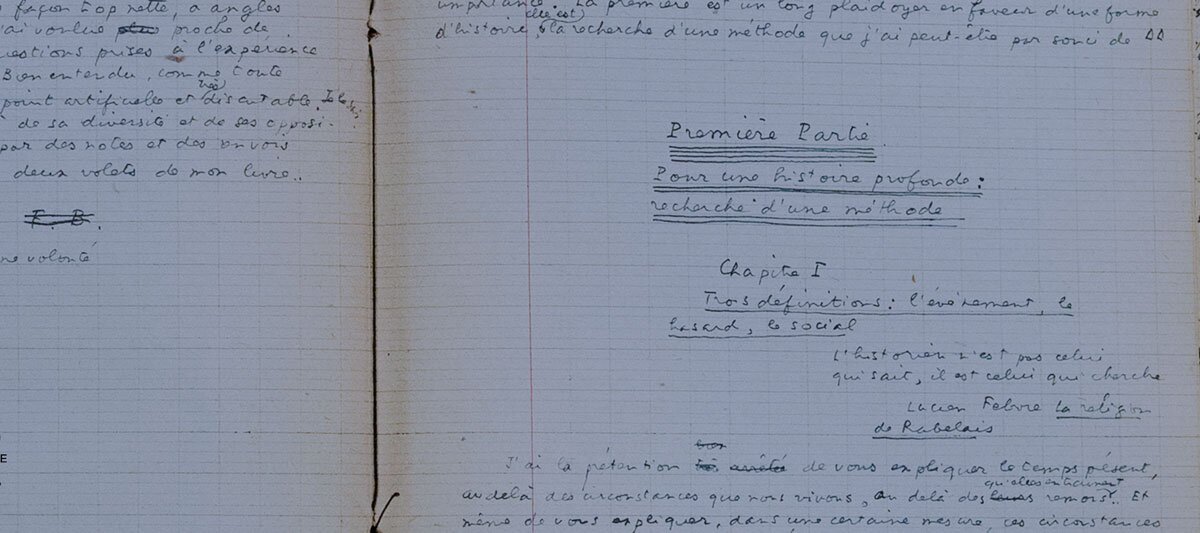 façon trop nette, à angles
j'ai voulue plus proche de
questions prises à l'expérience
Bien entendu, comme toute
très
point artificielle et discutable. Je le sais
de sa diversité et de ses opposi-
par des notes et des renvois
deux volets de mon livre..
F. B.
ne volonté
E
importance. La première est un long plaidoyer en faveur d'une forme
elle est
d'histoire, à la recherche d'une méthode que j'ai peut-être par souci de
Première Partie
Pour une histoire profonde :
recherche d'une méthode
Chapitre I
Trois définitions : l'événement, le
hasard, le social
L'historien n'est pas celui
qui sait, il est celui qui cherche
Lucien Febvre La religion
de Rabelais
J'ai la prétention de vous expliquer le temps présent,
qu'elles entraînent
au delà des circonstances que nous vivons, au delà des leurs remous. Et
même de vous expliquer, dans une certaine mesure, ces circonstances